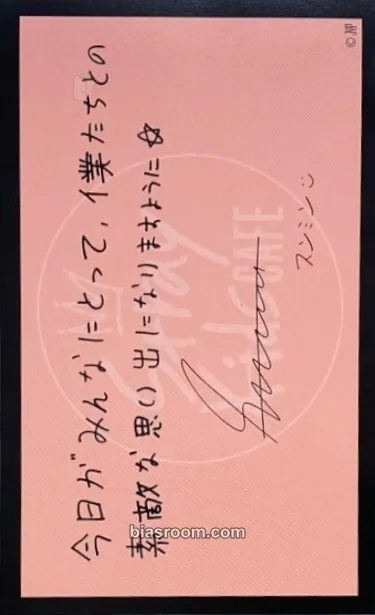 今日がみんなにとって、僕たちとの
素敵な思い出になりますように☆
スンミン :)
Stray
Kids CAFE
© JYP
biasroom.com